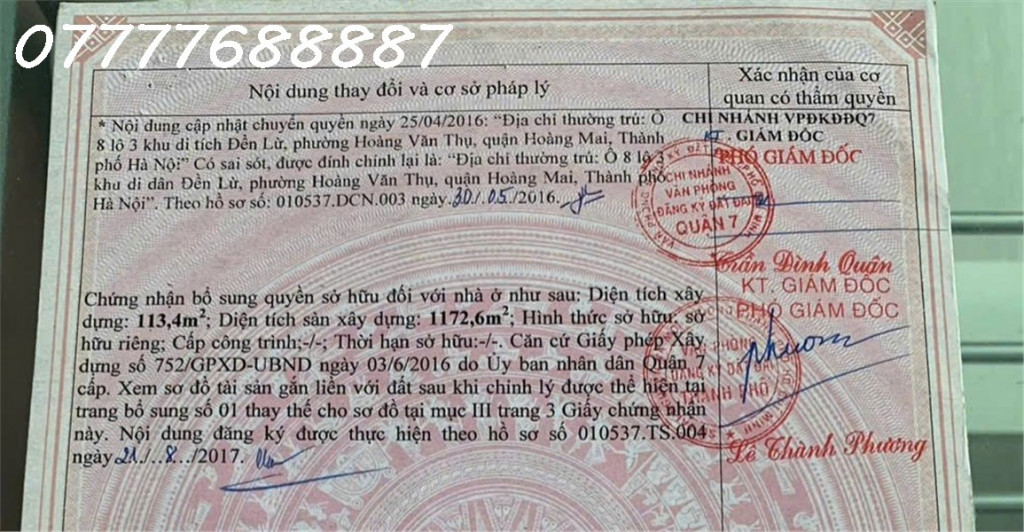 07777688887
Nội dung thay đổi và cơ sở pháp lý
Xác nhận của cơ
quan có thẩm quyền
* Nội dung cập nhật chuyển quyền ngày 25/04/2016: “Địa chỉ thường trú: Ô
8 lô 3 khu di tích Đền Lừ, phường Hoàng Văn Thụ, quận Hoàng Mai, Thành
phố Hà Nội” Có sai sót, được đính chính lại là: “Địa chỉ thường trú: Ô 8 lô 3
khu di dân Đền Lừ, phường Hoàng Văn Thụ, quận Hoàng Mai, Thành phố
Hà Nội”. Theo hồ sơ số: 010537.DCN.003 ngày 30/.05/2016.
CHI NHÁNH VPĐKĐĐQ7
KT. GIÁM ĐỐC
PHÓ GIÁM ĐỐC
CHI NHÁNH
VĂN PHÒNG
ĐĂNG KÝ ĐẤT ĐAI
QUẬN 7
Trần Đình Quận
Chứng nhận bổ sung quyền sở hữu đối với nhà ở như sau: Diện tích xây
dựng: 113,4m²; Diện tích sàn xây dựng: 1172,6m²; Hình thức sở hữu: sở
hữu riêng; Cấp công trình:-/-; Thời hạn sở hữu:-/-. Căn cứ Giấy phép Xây
dựng số 752/GPXD-UBND ngày 03/6/2016 do Ủy ban nhân dân Quận 7
cấp. Xem sơ đồ tài sản gắn liền với đất sau khi chỉnh lý được thể hiện tại
trang bổ sung số 01 thay thế cho sơ đồ tại mục III trang 3 Giấy chứng nhận
này. Nội dung đăng ký được thực hiện theo hồ sơ số 010537.TS.004
ngày 21./..8../2017.
KT. GIÁM ĐỐC
PHÓ GIÁM ĐỐC
VĂN PHÒNG
ĐĂNG KÝ ĐẤT ĐAI
THÀNH PHỐ
Phương
Lê Thành Phương